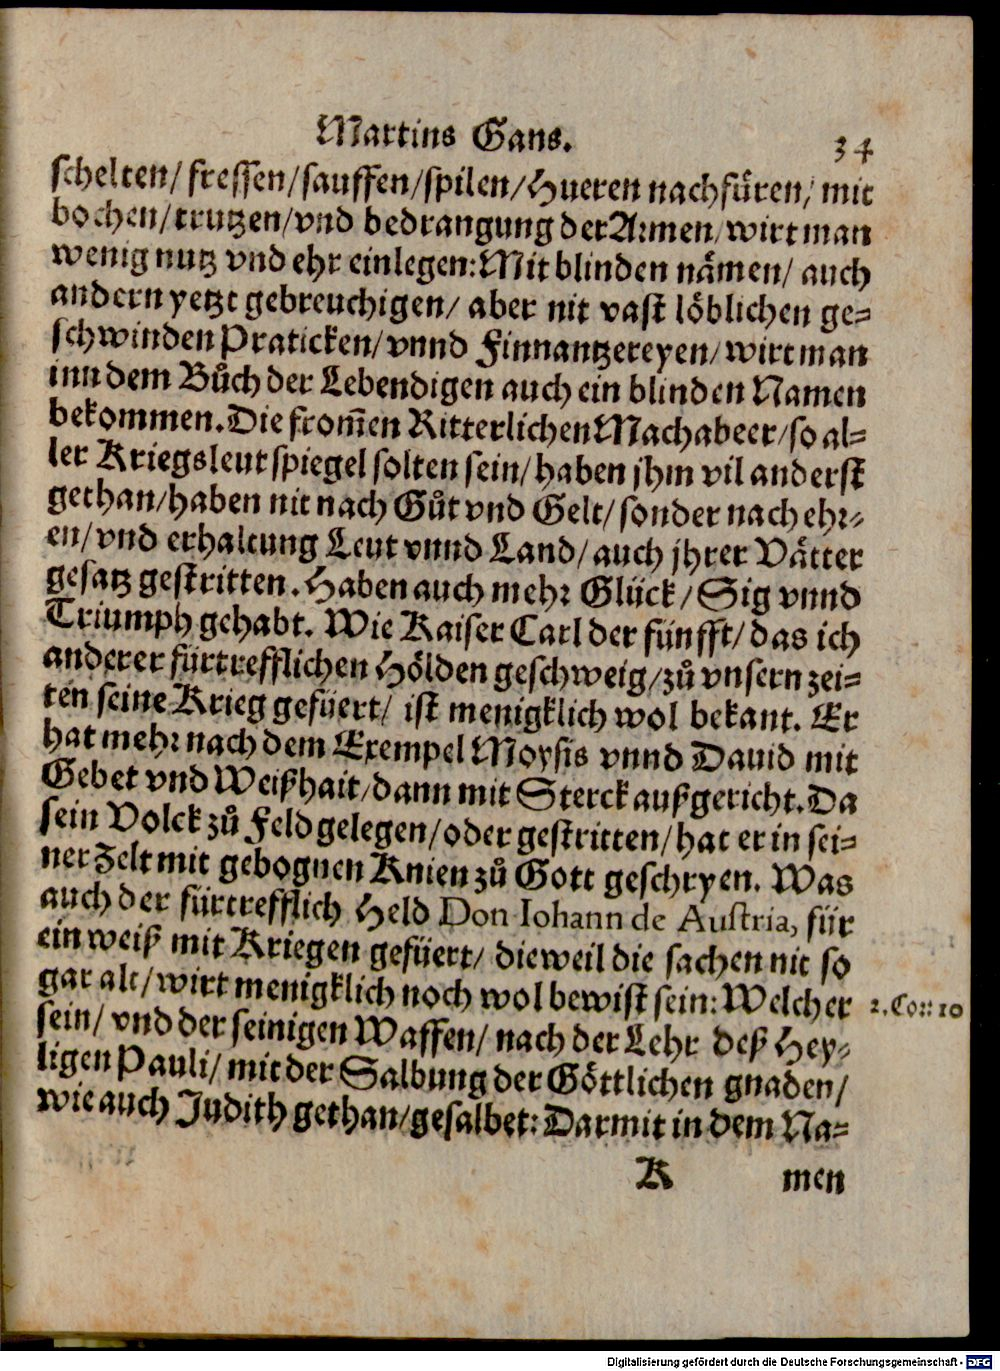 Martins Gans. 34
schelten/ fressen/ sauffen/ spilen/ Hueren nachfüren/ mit
bochen/ trutzen/ vnd bedrangung der Armen/ wirt man
wenig nutz vnd ehr einlegen: Mit blinden nämen/ auch
andern yetzt gebreuchigen/ aber nit vast löblichen ge⸗
schwinden Praticken/ vnnd Finnantzereyen/ wirt man
inn dem Bůch der Lebendigen auch ein blinden Namen
bekommen. Die from̃en Ritterlichen Machabeer/ so al⸗
ler Kriegsleut spiegel solten sein/ haben jhm vil anderst
gethan/ haben nit nach Gůt vnd Gelt/ sonder nach ehr⸗
en/ vnd erhaltung Leut vnnd Land/ auch jhrer Vätter
gesatz gestritten. Haben auch mehr Glück/ Sig vnnd
Triumph gehabt. Wie Kaiser Carl der fünfft/ das ich
anderer fürtrefflichen Hölden geschweig/ zů vnsern zei⸗
ten seine Krieg gefüert/ ist menigklich wol bekant. Er
hat mehr nach dem Exempel Moysis vnnd Dauid mit
Gebet vnd Weißhait/ dann mit Sterck außgericht. Da
sein Volck zů Feld gelegen/ oder gestritten/ hat er in sei⸗
ner Zelt mit gebognen Knien zů Gott geschryen. Was
auch der fürtrefflich Held Don Iohann de Austria, für
ein weiß mit Kriegen gefüert/ dieweil die sachen nit so
gar alt/ wirt menigklich noch wol bewist sein: Welcher
2. Cor: 10
sein/ vnd der seinigen Waffen/ nach der Lehr deß Hey⸗
ligen Pauli/ mit der Salbung der Göttlichen gnaden/
wie auch Judith gethan/ gesalbet: Darmit in dem Na⸗
K men
Digitalisierung gefördert durch die Deutsche Forschungsgemeinschaft - DFG